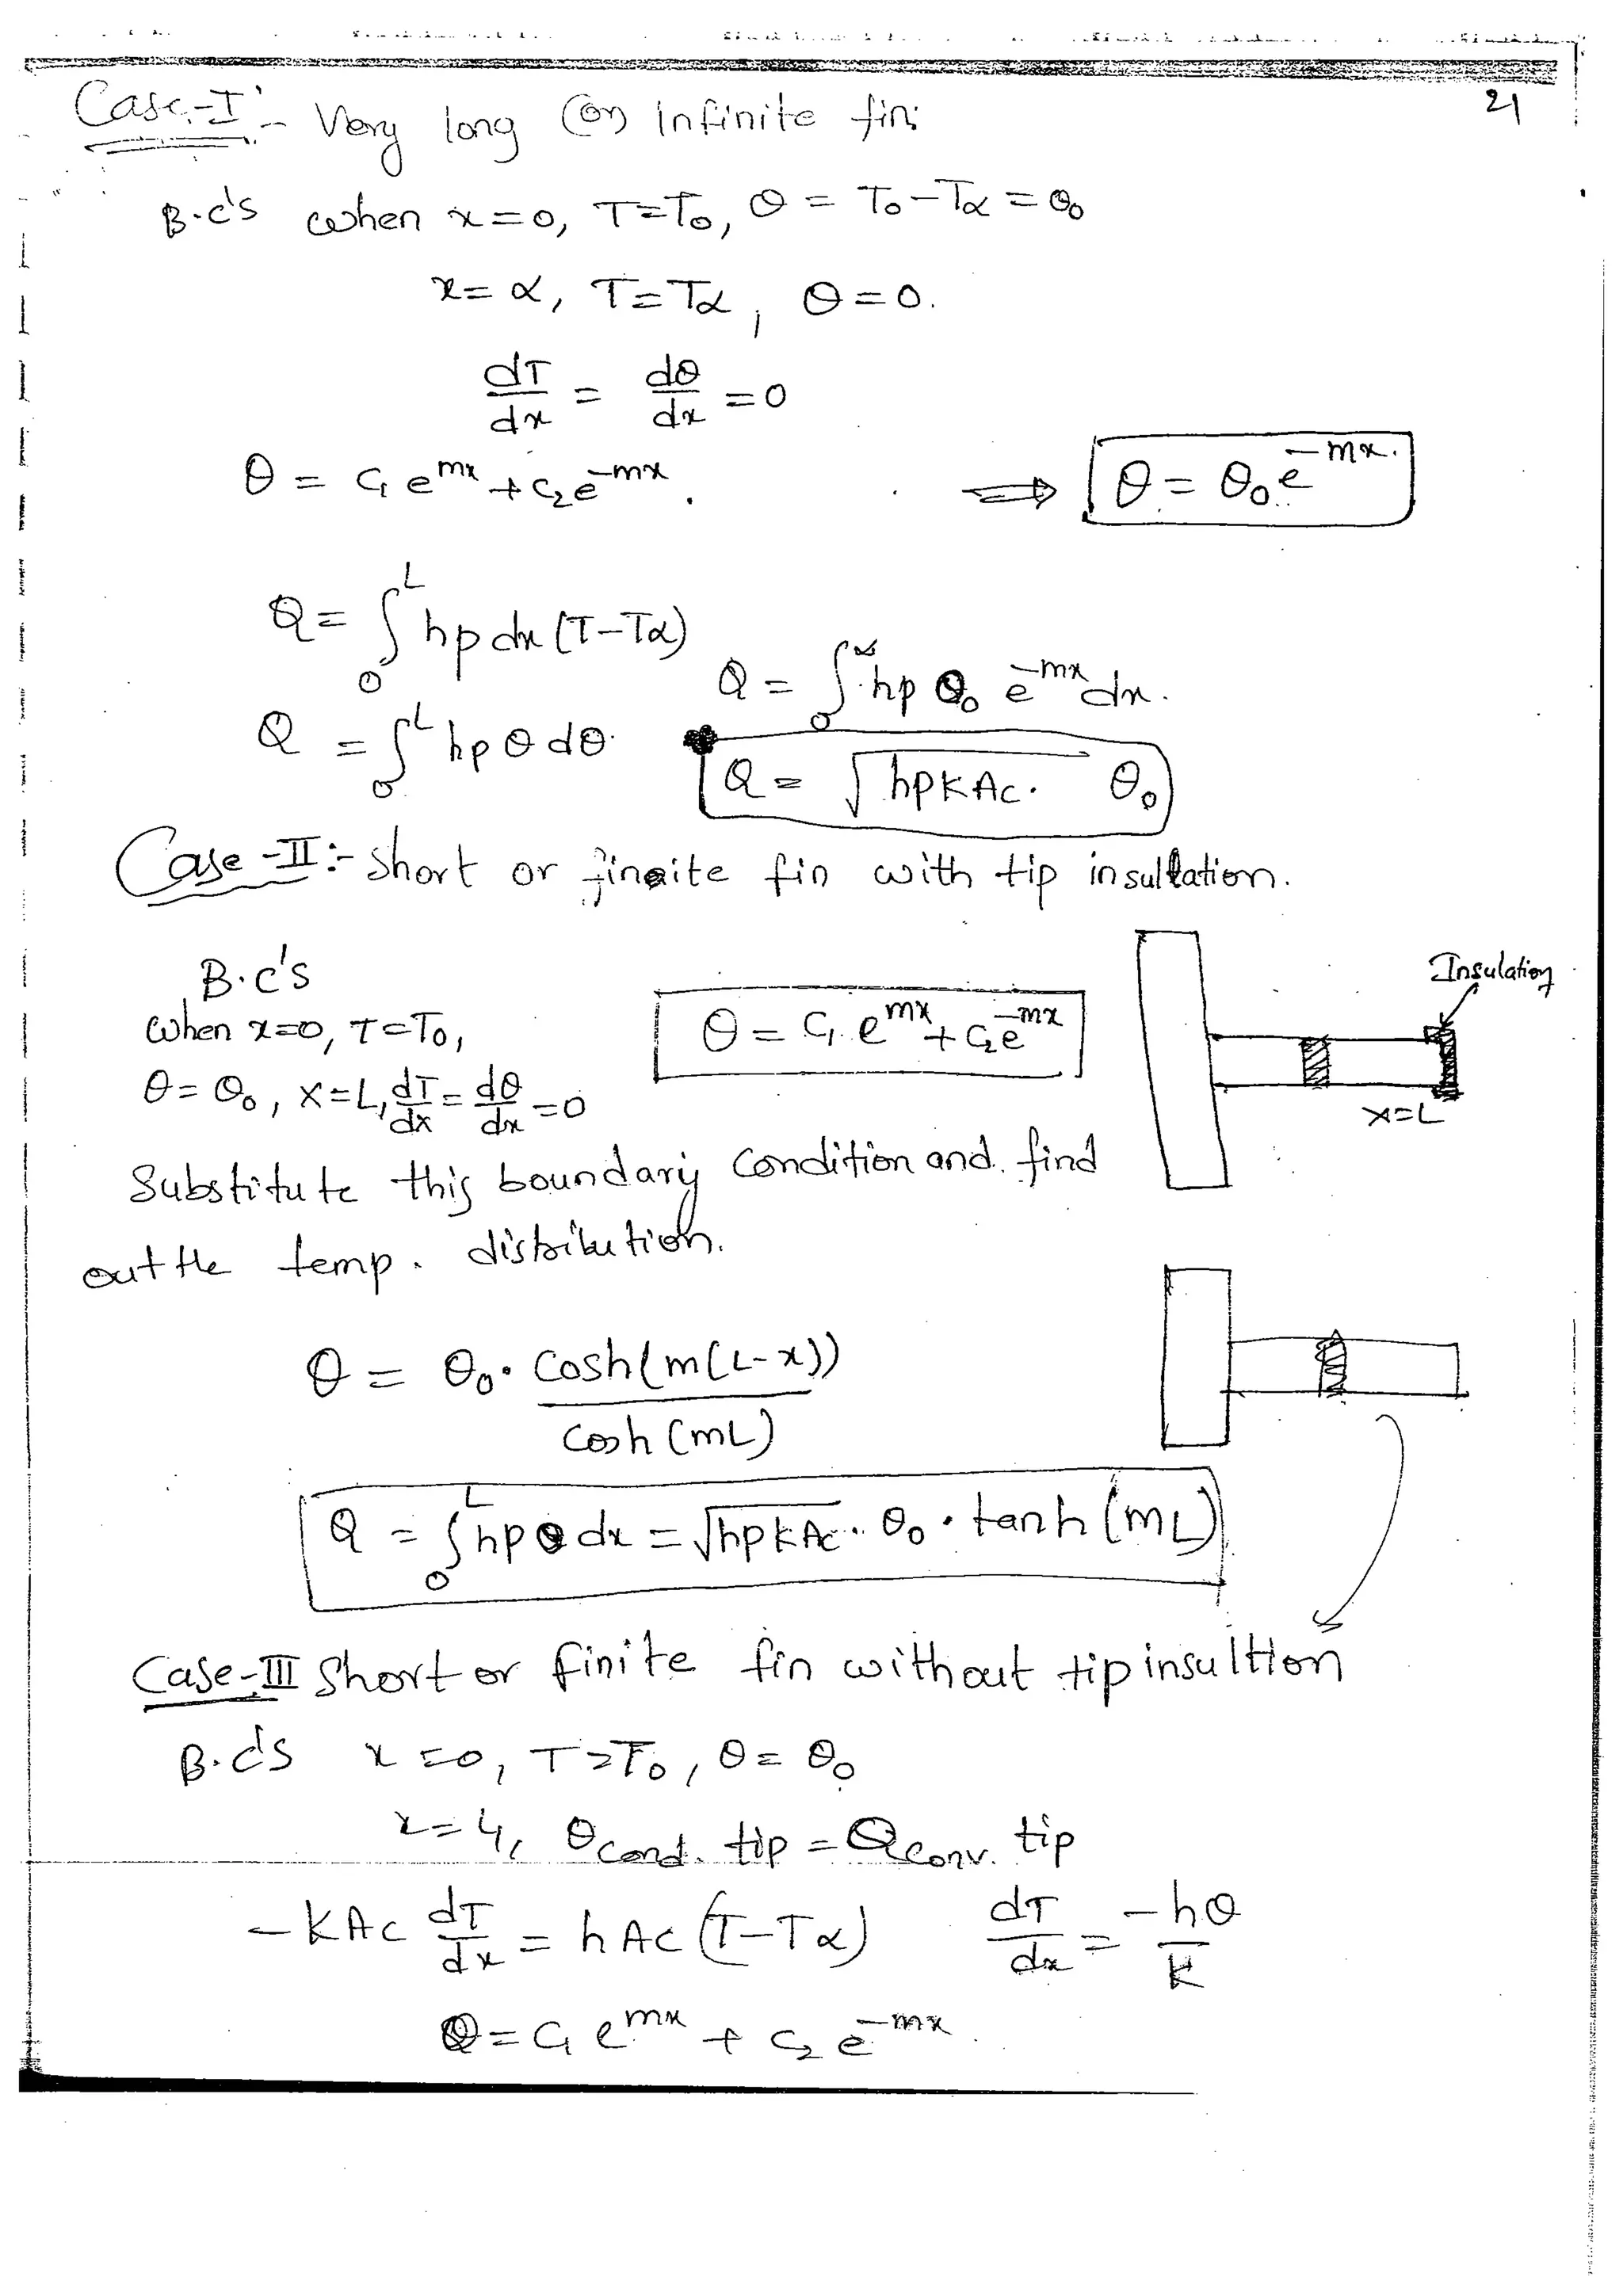 21
Case-I :- Very long (or) Infinite fin:
B.C's when x=0, T=To, θ = To-Tα = θo
x=α, T=Tα, θ=0.
dT/dx = dθ/dx =0
θ = C1 e^mx + C2 e^-mx. ⇒ θ = θo e^-mx.
Q= ∫0^L hp dx (T-Tα)
Q = ∫0^∞ hp θo e^-mx dx.
Q = ∫0^L hp θ dθ.
Q = √hpKAc. θo
Case-II :- Short or finite fin with tip insullation.
Insulation
B.C's
when x=0, T=To,
θ = C1 e^mx + C2 e^-mx
θ=θo, x=L, dT/dx = dθ/dx =0
x=L
Substitute this boundary condition and find
out the temp. distribution.
θ = θo. Cosh(m(L-x)) / Cosh (mL)
Q = ∫0^L hp θ dx = √hpKAc. θo. tanh (mL)
Case-III Short or finite fin without tip insultion
B.C's x=0, T=To, θ=θo
x=L, Qcond. tip = Qconv. tip
-KAc dT/dx = hAc (T-Tα) dT/dx = -hθ/K
θ = C1 e^mx + C2 e^-mx.